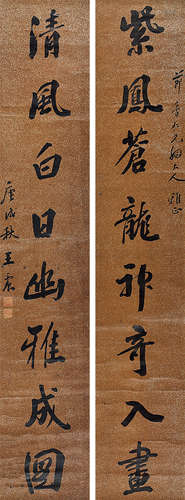 紫鳳蒼龍神奇入畫
大人雅正
清風白日幽雅成圖
庚戌秋王震